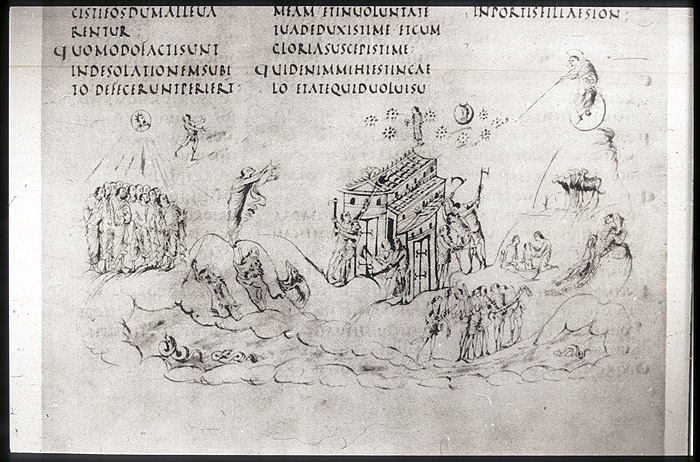 CISTIEOSDUMALLEUA
RENTUR·
QUOMODOFACTISUNT
INDESOLATIONEMSUBI
TO DEFECERUNTPERIERT
MEAM ETINUOLUNTATE
TUADEDUXISTIME ETCUM
GLORIASUSCEPISTIME·
QUIDENIMMIHIESTINCAE
LO ETATEQUIDUOLUISU
INPORTISFILIAESION·